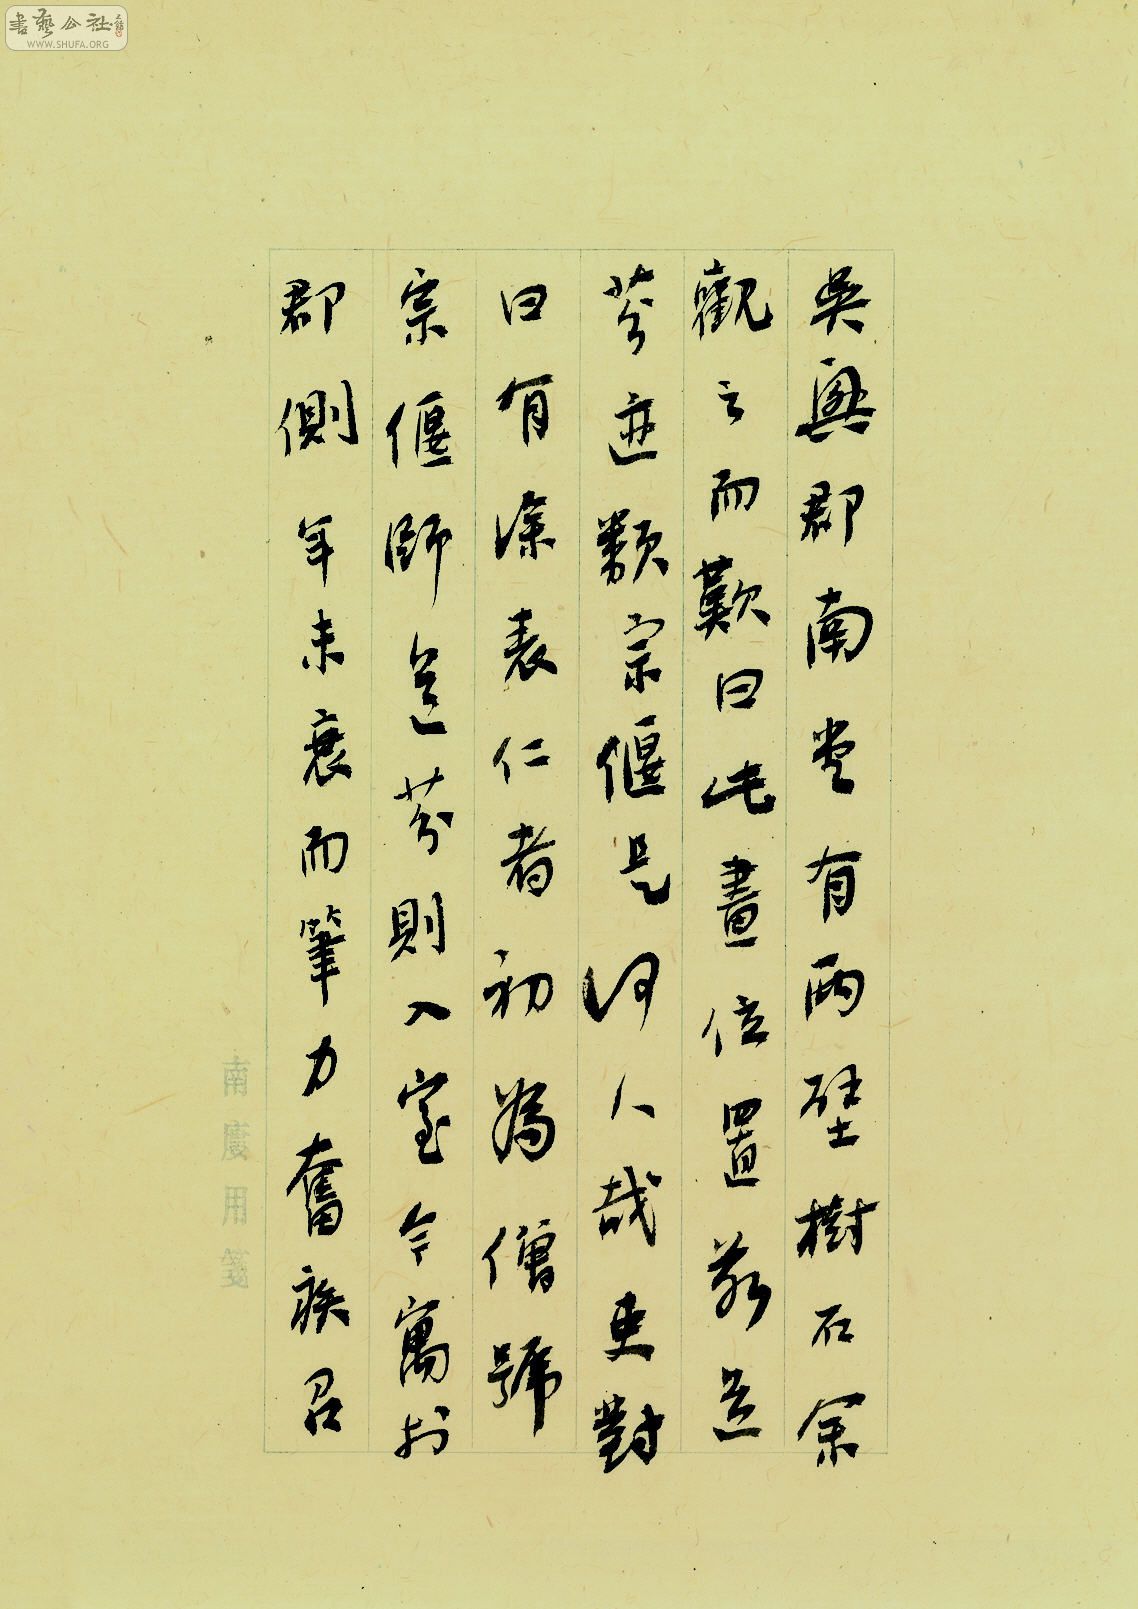 吳興郡南堂有兩壁樹石余
觀之而歎曰此畫位置若道
芬迹類宗偃是何人哉吏對
曰有涤表仁者初為僧號
宗偃師道芬則入室今寓於
郡側年未衰而筆力奮疾召
南廔用箋
書藝公社
WWW.SHUFA.ORG